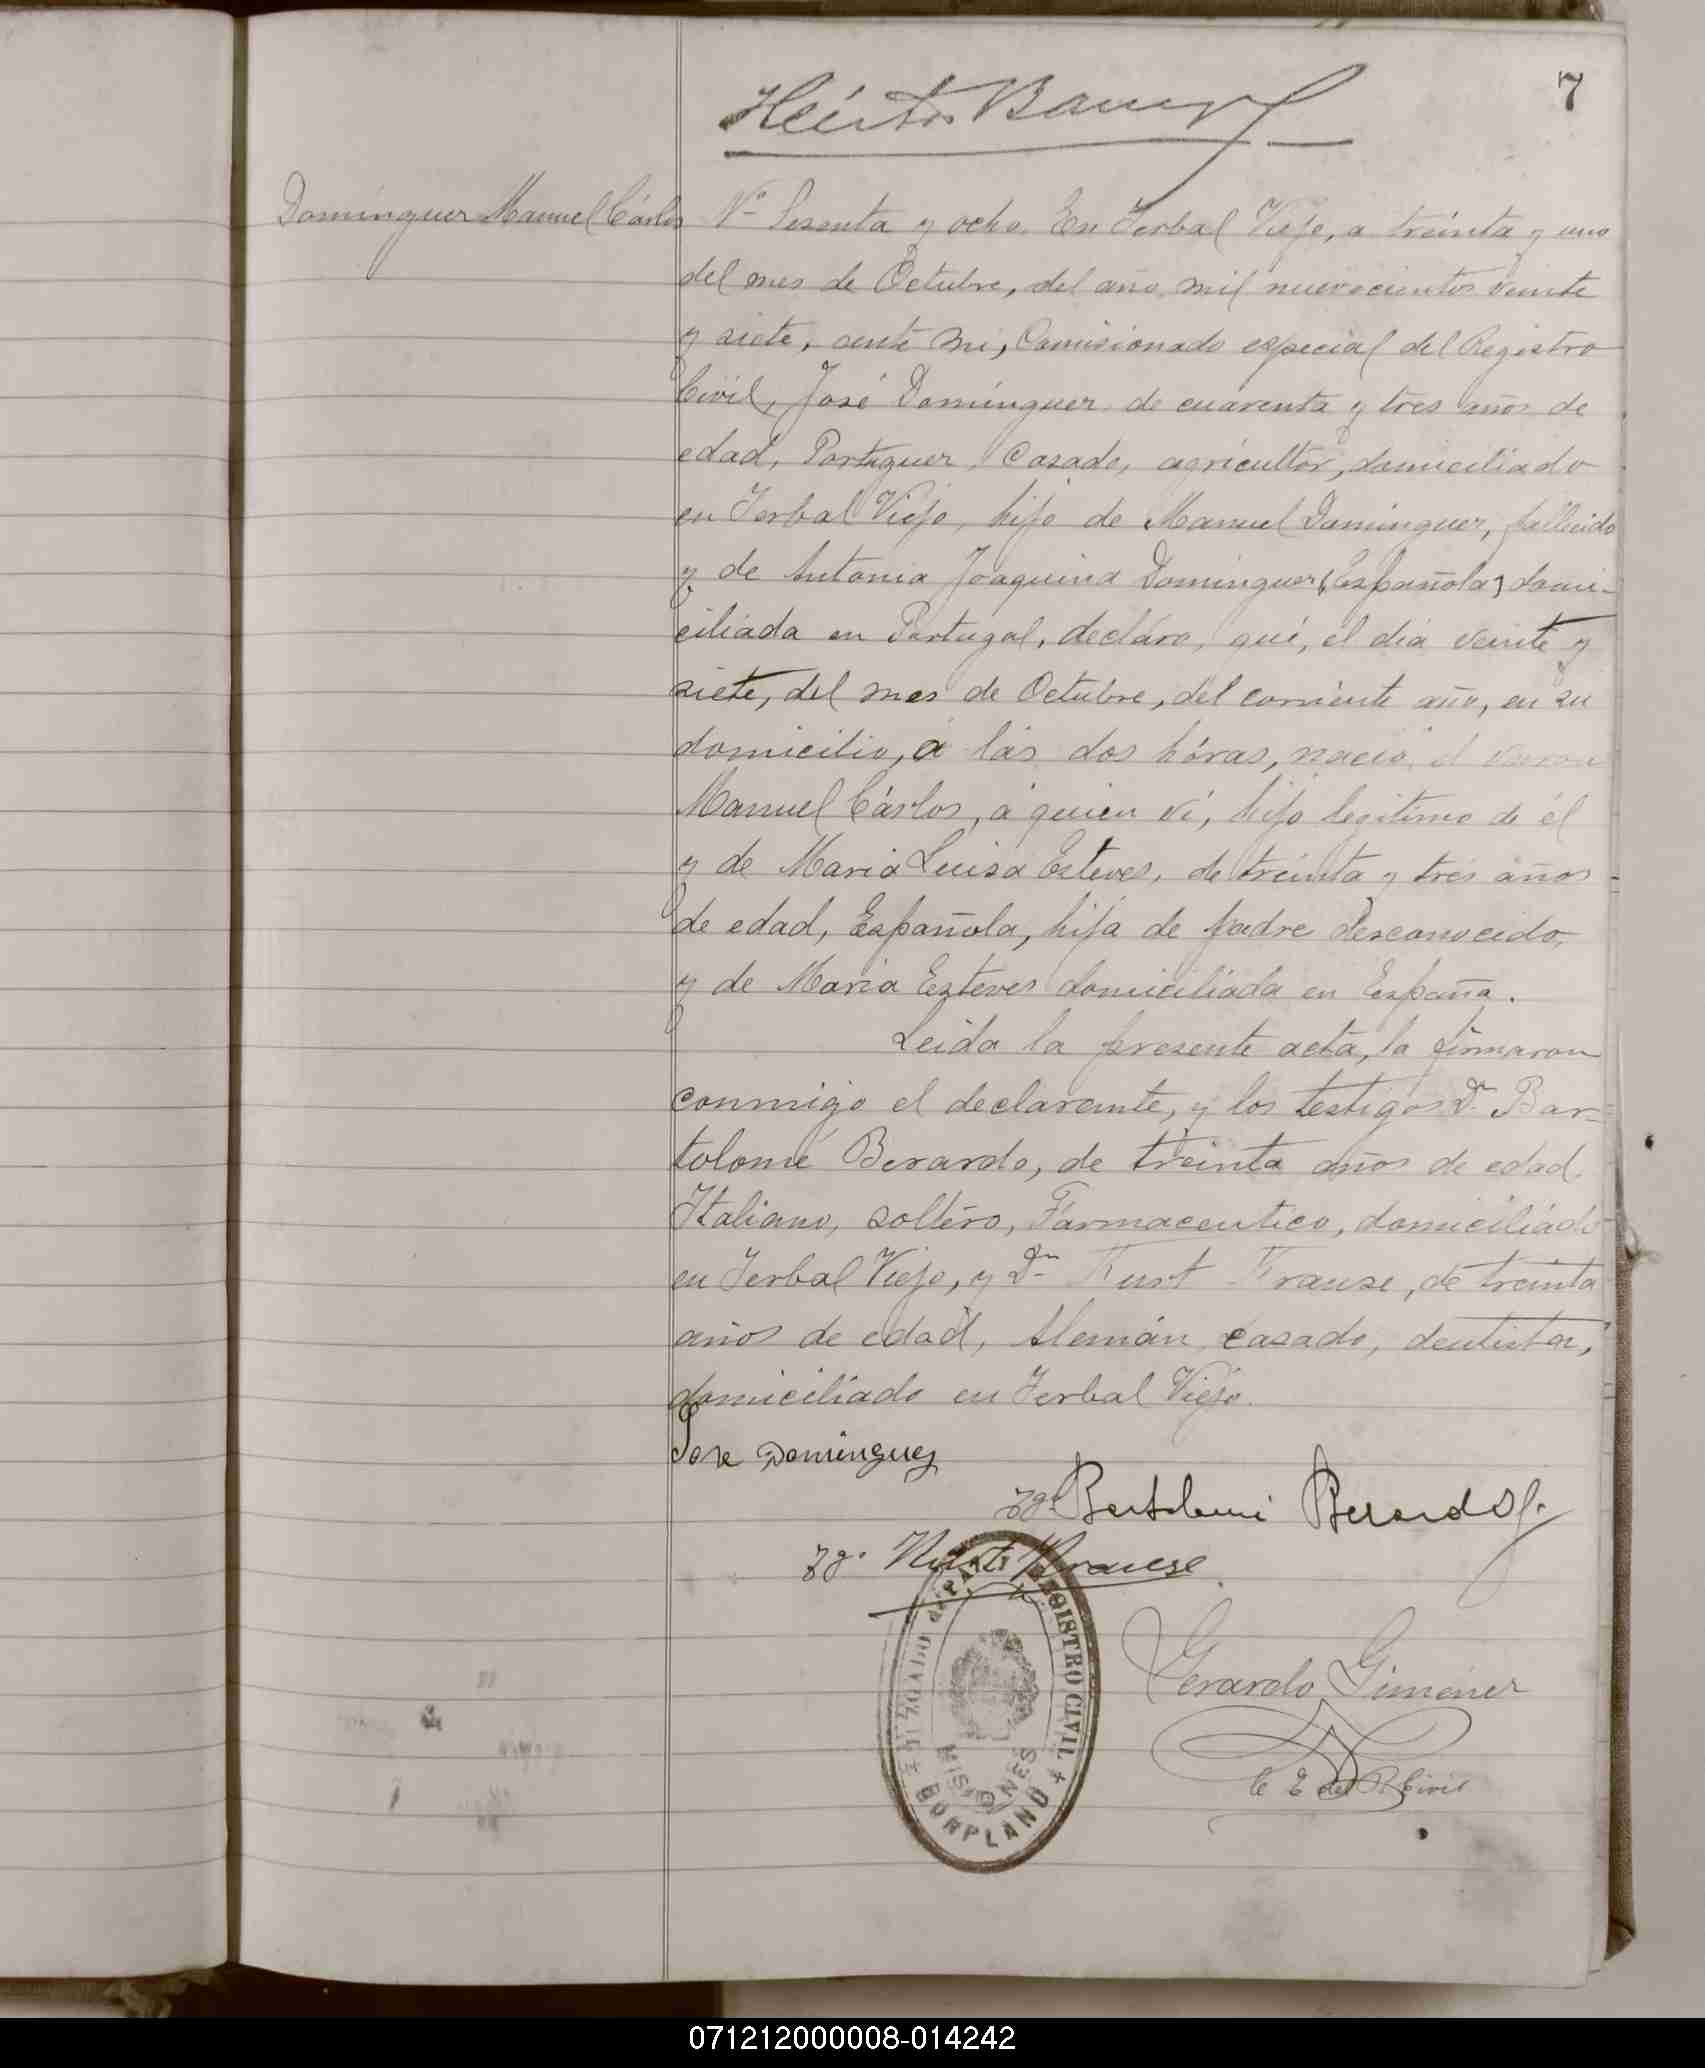 7
Héctor
Dominguez Manuel Cárlos
Nº Sesenta y ocho. En Yerbal Viejo, a treinta y uno
del mes de Octubre, del año mil nuevecientos veinte
y siete, ante mi, Comisionado especial del Registro
Civil, José Dominguez de cuarenta y tres años de
edad, Portuguez, Casado, agricultor, domiciliado
en Yerbal Viejo, hijo de Manuel Dominguez, fallecido
y de Antonia Joaquina Dominguez (Española) domi-
ciliada en Portugal, decláro, qué, el dia veinte y
siete, del mes de Octubre, del corriente año, en su
domicilio, á lás dos hóras, nació el varon
Manuel Cárlos, á quien ví, hijo legitimo de él
y de Maria Luisa Esteves, de treinta y tres años
de edad, Española, hija de padre desconocido,
y de Maria Esteves domiciliada en España.
Leida la presente acta, la firmaron
conmigo el declarante, y los testigos Dn Bar-
tolomé Berardo, de treinta años de edad,
Italiano, soltéro, Farmaceutico, domiciliádo
en Yerbal Viejo, y Dn Kurt Krause, de treinta
años de edad, Alemán, casado, dentista,
domiciliado en Yerbal Viejo.
Jose Dominguez
Tgo. Bartolomé Berardo
Tgo. Kurt Krause
Gerardo Giménez
C E del R Civil
JUZGADO de PAZ Y REGISTRO CIVIL
MISIONES
BONPLAND
071212000008-014242